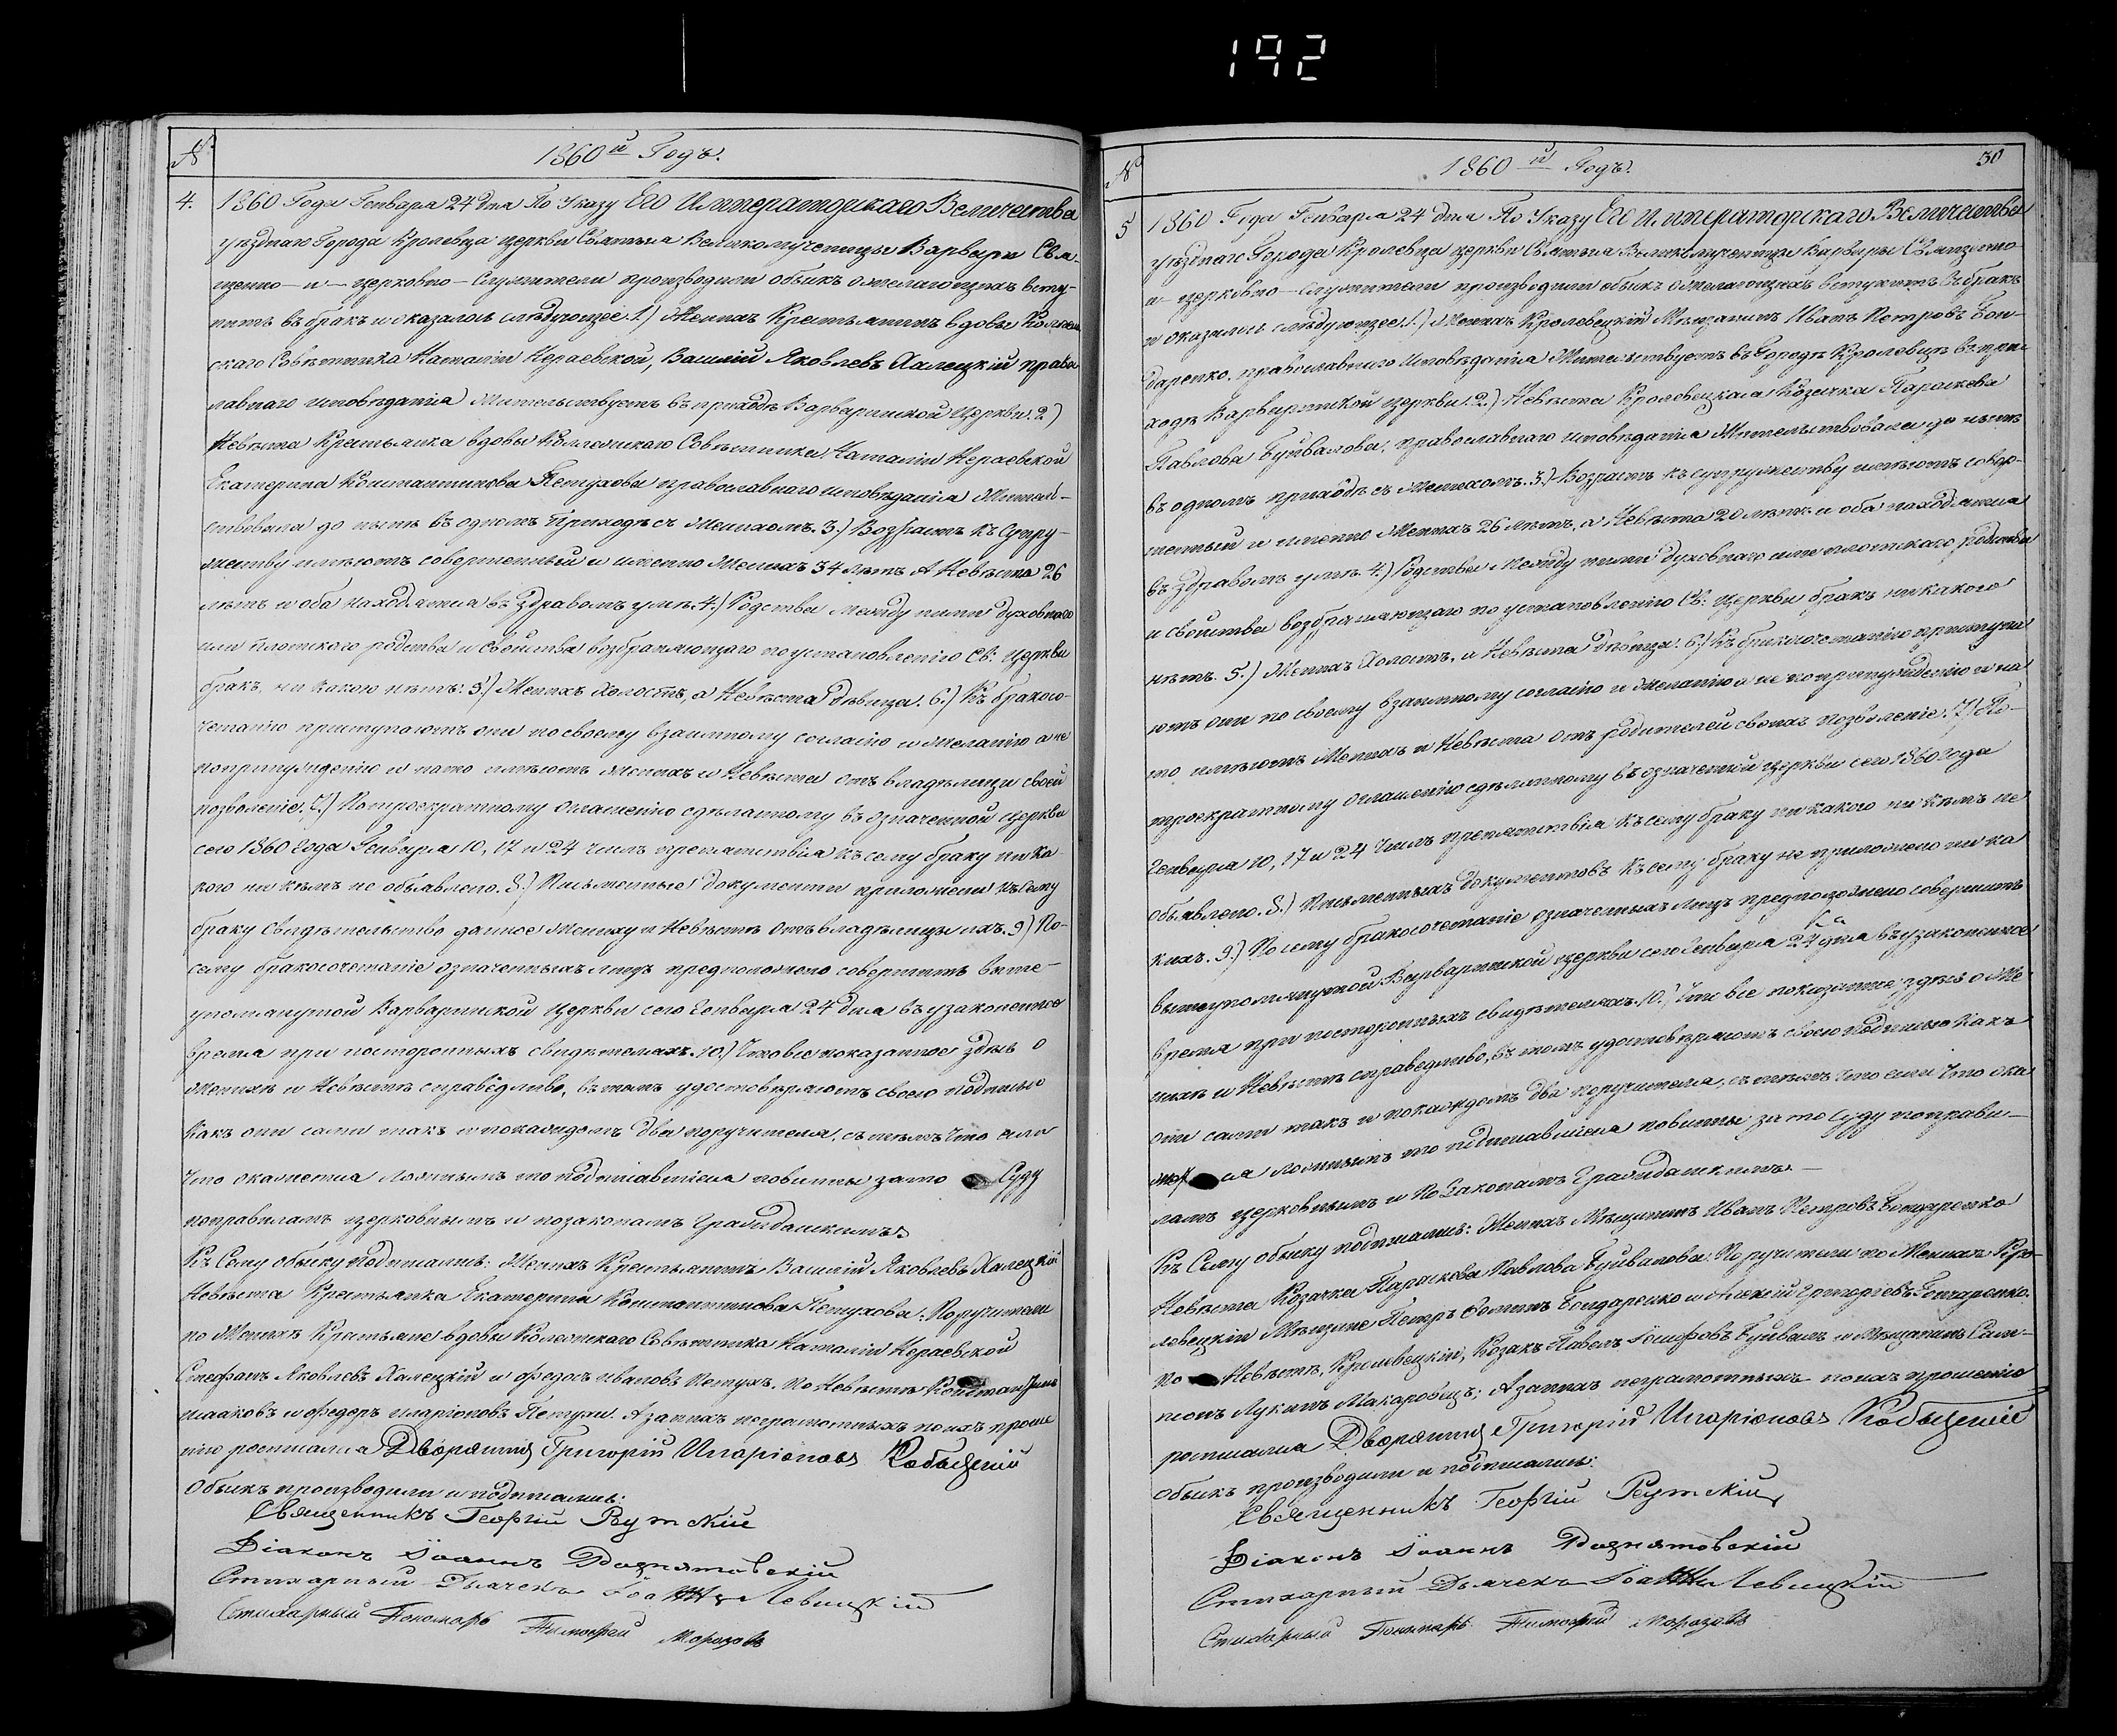 192
№
1860й Годъ.
4.
1860 Года Генваря 24 дня По Указу Его Императорскаго Величества
уѣзднаго Города Кролевца церкви Святыя Великомученицы Варвары Свя-
щенно-и-церковно-служители производили обыскъ о желающихъ всту-
пить въ бракъ и оказалось слѣдующее. 1.) Женихъ Крестьянинъ вдовы Коллеж-
скаго Совѣтника Наталіи Нераевской, Василій Яковлевъ Халецкій право-
славнаго исповѣданія Жительствуетъ въ приходѣ Варваринской Церкви. 2.)
Невѣста Крестьянка вдовы Коллежскаго Совѣтника Наталіи Нераевской
Екатерина Константинова Петухова православнаго исповѣданія Житель-
ствовала до нынѣ въ одномъ Приходѣ съ Женихомъ. 3.) Возрастъ къ Супру-
жеству имѣютъ совершенный и именно Женихъ 34 лѣтъ А Невѣста 26
лѣтъ и оба находятся въ здравомъ умѣ. 4.) Родства между ними духовнаго
или плотского родства и свойства возбраняющаго по установленію Св: Церкви
бракъ, ни какого нѣтъ: 5.) Женихъ Холостъ, а Невѣста дѣвица. 6.) Къ бракосо-
четанію приступаютъ они по своему взаимному согласію и желанію а не
по принужденію и на то имѣютъ Женихъ и Невѣста отъ владѣлицы своей
позволеніе. 7.) По троекратному оглашенію сдѣланному въ означенной церкви
сего 1860 года Генваря 10, 17 и 24 числъ препятствія къ сему браку ни ка-
кого ни кѣмъ не объявлено. 8.) Письменные документы приложены къ Сему
браку свидѣтельство данное Жениху и Невѣстѣ отъ владѣлицы ихъ. 9.) По-
сему бракосочетаніе означенныхъ лицъ предположено совершить выше-
упомянутой Варваринской Церкви сего Генваря 24 дня въ узаконенное
время при постороннихъ свидѣтеляхъ. 10.) Что все показанное здѣсь о
Женихѣ и Невѣстѣ справедливо, въ томъ удостовѣряютъ своею подписью
Какъ они сами такъ и по каждомъ два поручителя, съ тѣмъ что если
что окажется ложнымъ то подписавшіеся повинны за то Суду
по правиламъ церковнымъ и по законамъ Гражданскимъ.
Къ Сему обыску подписались: Женихъ Крестьянинъ Василій Яковлевъ Халецкій
Невѣста Крестьянка Екатерина Константинова Петухова: Поручители
по Женихѣ Крестьяне вдовы Колежскаго Совѣтника Наталіи Нераевской
Стефанъ Яковлевъ Халецкій и Федосъ Ивановъ Петухъ. По Невѣстѣ Константинъ
и Федоръ Иларіоновъ Петухи. А за нихъ неграмотныхъ по ихъ проше
нію росписался Дворянинъ Григорій Иларіоновъ Кобыцкій
Обыскъ производили и подписались:
Священникъ Георгій Рутскій
Діаконъ Іоаннъ Рознятовскій
Стихарный Дьячекъ Іоаннъ Левицкій
Стихарный Пономарь Тимофей Морозовъ
№
1860й Годъ.
30
5
1860 Года Генваря 24 дня По Указу Его Императорскаго Величества
уѣзднаго Города Кролевца церкви Святыя Великомученицы Варвары Священно
и церковно-служители производили обыскъ о желающихъ вступить въ бракъ
и оказалось слѣдующее. 1.) Женихъ Кролевецкій Мѣщанинъ Иванъ Петровъ Бон-
даренко. православнаго исповѣданія Жительствуетъ въ Городѣ Кролевцѣ въ при
ходѣ Варваринской церкви. 2.) Невѣста Кролевецкая Козачка Параскева
Павлова Буйвалова, православнаго исповѣданія Жительствовала до нынѣ
въ одномъ приходѣ съ Женихомъ. 3.) Возрастъ къ супружеству имѣютъ совер-
шенный и именно Женихъ 26 лѣтъ, а Невѣста 20 лѣтъ и оба находятся
въ здравомъ умѣ. 4.) Родства между ними духовнаго или плотскаго родства
и свойства возбраняющаго по установленію Св: Церкви бракъ никакого
нѣтъ. 5.) Женихъ Холостъ, а Невѣста дѣвица. 6.) Къ бракосочетанію приступа
ютъ они по своему взаимному согласію и желанію а не по принужденію и на
то имѣютъ Женихъ и Невѣста отъ родителей своихъ позволеніе. 7.) По-
троекратному оглашенію сдѣланному въ означенной церкви сего 1860 года
Генваря 10, 17 и 24 числъ препятствія къ сему браку ни какого ни кѣмъ не
объявлено. 8.) Письменныхъ документовъ къ сему браку не приложено ни ка
кихъ. 9.) По сему бракосочетаніе означенныхъ лицъ предположено совершить
вышеупомянутой Варваринской церкви сего Генваря 24 дня въ узаконенное
время при постороннихъ свидѣтеляхъ. 10.) Что все показанное здѣсь о Же
нихѣ и Невѣстѣ справедливо, въ томъ удостовѣряютъ своею подписью Какъ
они сами такъ и по каждомъ два поручителя, съ тѣмъ что если что ока
жется ложнымъ то подписавшіеся повинны за то Суду по прави-
ламъ церковнымъ и по Законамъ Гражданскимъ.—
Къ Сему обыску подписались: Женихъ Мѣщанинъ Иванъ Петровъ Бондаренко
Невѣста Козачка Параскева Павлова Буйвалова: Поручители по Женихѣ Кро-
левецкіи Мѣщане Петръ Бондаренко и Алексій Григоріевъ Гончаренко.
По Невѣстѣ, Кролевецкіи, Козакъ Павелъ Іосифовъ Буйвалъ и Мѣщанинъ Сам-
псонъ Лукинъ Макаровецъ; А за нихъ неграмотныхъ по ихъ прошенію
росписался Дворянинъ Григорій Иларіоновъ Кобыцкій
Обыскъ производили и подписались:
Священникъ Георгій Рутскій
Діаконъ Іоаннъ Рознятовскій
Стихарный Дьячекъ Іоаннъ Левицкій
Стихарный Пономарь Тимофей Морозовъ